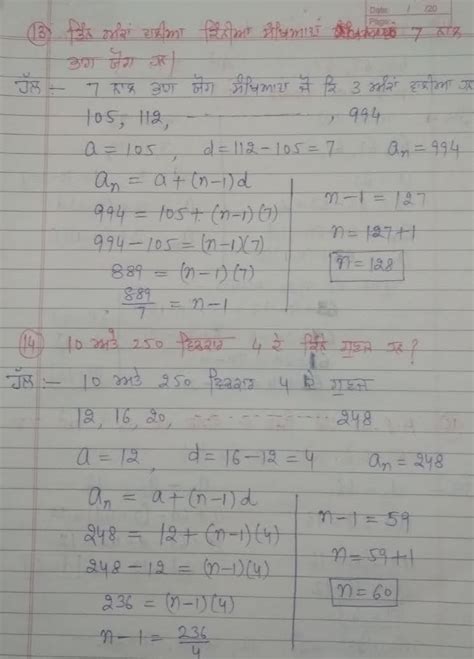 Date / /20
Page
(13) ਤਿੰਨ ਅੰਕਾਂ ਵਾਲੀਆਂ ਕਿੰਨੀਆਂ ਸੰਖਿਆਵਾਂ 7 ਨਾਲ
ਭਾਗ ਯੋਗ ਹਨ|
ਹੱਲ :- 7 ਨਾਲ ਭਾਗ ਯੋਗ ਸੰਖਿਆਵਾਂ ਜੋ ਕਿ 3 ਅੰਕਾਂ ਵਾਲੀਆਂ ਹਨ
105, 112, ------------, 994
a = 105, d = 112 - 105 = 7 an = 994
an = a + (n-1)d
994 = 105 + (n-1)(7)
994 - 105 = (n-1)(7)
889 = (n-1)(7)
889/7 = n-1
n-1 = 127
n = 127+1
n = 128
(14) 10 ਅਤੇ 250 ਵਿਚਕਾਰ 4 ਦੇ ਕਿੰਨੇ ਗੁਣਜ ਹਨ?
ਹੱਲ :- 10 ਅਤੇ 250 ਵਿਚਕਾਰ 4 ਦੇ ਗੁਣਜ
12, 16, 20, ------------ 248
a = 12, d = 16 - 12 = 4 an = 248
an = a + (n-1)d
248 = 12 + (n-1)(4)
248 - 12 = (n-1)(4)
236 = (n-1)(4)
n-1 = 236/4
n-1 = 59
n = 59+1
n = 60